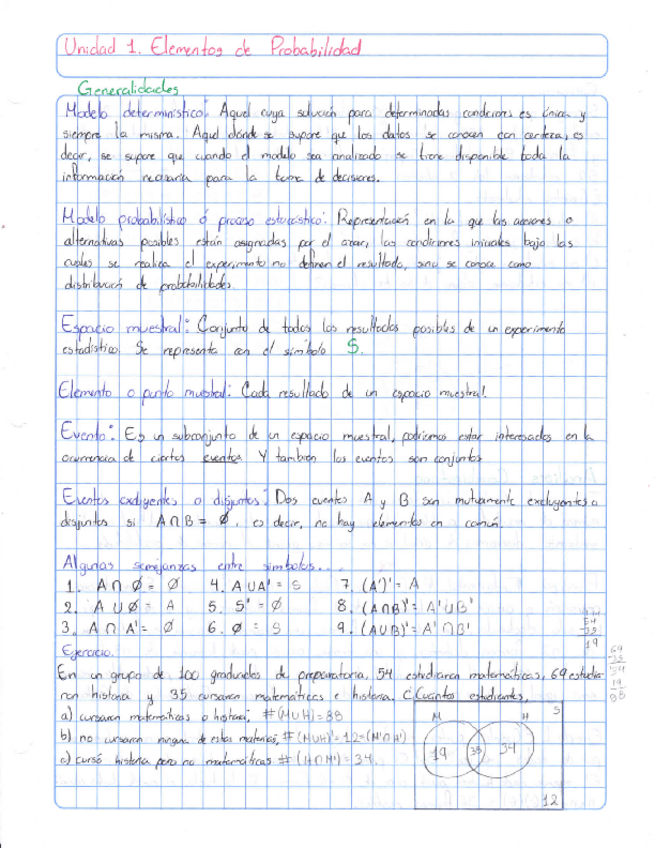 Unidad 1. Elementos de Probabilidad
Generalidades
Modelo deterministico: Aquel cuya solución para determinadas condiciones es única y
siempre la misma. Aquel donde se supone que los datos se conocen con certeza, es
decir, se supone que cuando el modelo sea analizado se tiene disponible toda la
información necesaria para la toma de decisiones.
Modelo probabilístico ó proceso estocástico: Representación en la que las acciones o
alternativas posibles están asignadas por el azar, las condiciones iniciales bajo las
cuales se realiza el experimento no definen el resultado, sino se conoce como
distribución de probabilidades.
Espacio muestral: Conjunto de todos los resultados posibles de un experimento
estadístico. Se representa con el símbolo S.
Elemento o punto muestral: Cada resultado de un espacio muestral.
Evento: Es un subconjunto de un espacio muestral, podriamos estar interesados en la
ocurrencia de ciertos eventos Y tambien los eventos son conjuntos
Eventos excluyentes o disjuntos: Dos eventos A y B son mutuamente excluyentes o
disjuntos si A∩B = Ø, es decir, no hay elementos en común.
Algunas semejanzas entre simbolos...
1. A∩Ø = Ø 4. A∪A' = S 7. (A')' = A
2. A∪Ø = A 5. S' = Ø 8. (A∩B)' = A'∪B'
3. A∩A' = Ø 6. Ø = S 9. (A∪B)' = A'∩B'
Ejercicio.
En un grupo de 100 graduados de preparatoria, 54 estudiaron matemáticas, 69 estudia-
ron historia y 35 cursaron matemáticas e historia. ¿Cuantos estudiantes,
a) cursaron matemáticas o historia; #(M∪H)=88
b) no cursaron ninguna de estas materias; #(M∪H)'=12=(M'∩H')
c) cursó historia pero no matemáticas #(H∩M')=34.
M H S
19 35 34
12
54
19
69
34
19
88